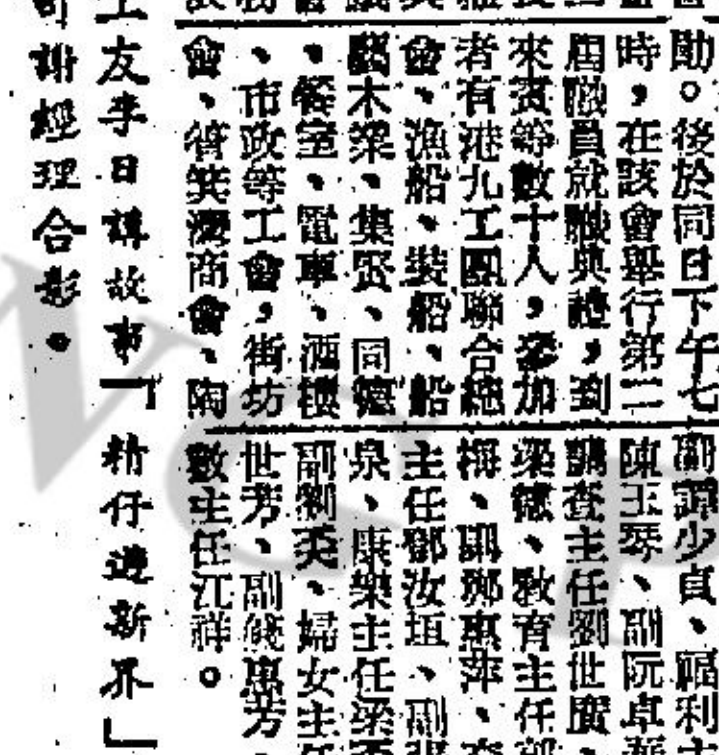 勛。後於同日下午七
時，在該會舉行第二
屆職員就職典禮，到
來賓等數十人，參加
者有港九工團聯合總
會、漁船、裝船、船
木樑、集賢、同德
、餐室、電車、酒樓
、市政等工會，街坊
會、筲箕灣商會、陶
副譚少貞、福利主
陳玉琴、副阮卓
調查主任劉世廣、
梁德、教育主任
梅、副鄭惠萍、
主任鄧汝垣、副
泉、康樂主任梁
副劉英、婦女主任
世芳、副錢惠芳、
數主任江祥。
工友李日講故事「精仔遊新界」
司謝經理合影。